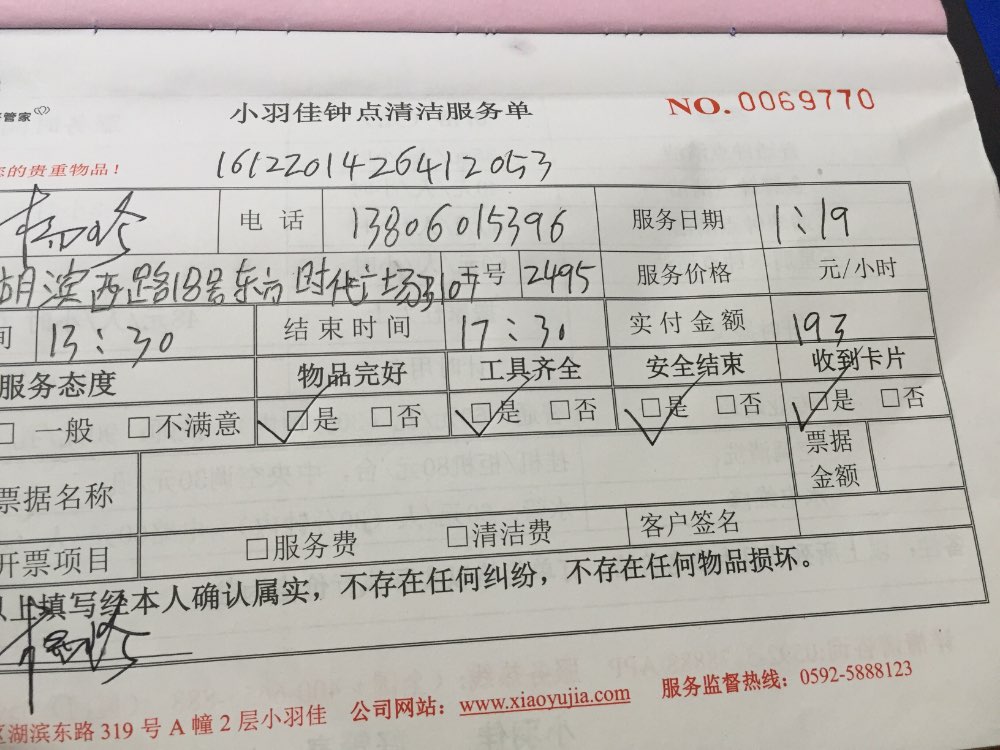 管家
小羽佳钟点清洁服务单
NO. 0069770
您的贵重物品!
1612201426412053
电 话 13806015396 服务日期 1:19
湖滨西路18号东方时代广场 107 号 2495 服务价格 元/小时
间 13:30 结束时间 17:30 实付金额 193
服务态度 物品完好 工具齐全 安全结束 收到卡片
□ 一般 □不满意 □是 □否 □是 □否 □是 □否 □是 □否
票据名称 票据金额
开票项目 □服务费 □清洁费 客户签名
以上填写经本人确认属实，不存在任何纠纷，不存在任何物品损坏。
区湖滨东路 319 号 A 幢 2 层小羽佳 公司网站：www.xiaoyujia.com 服务监督热线：0592-5888123